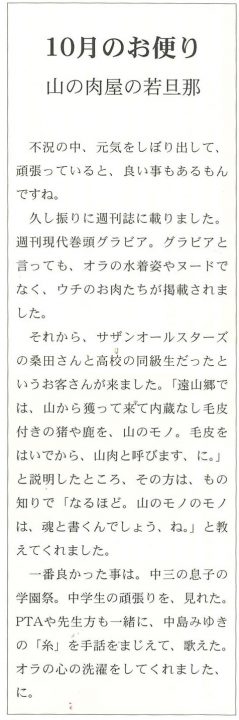 10月のお便り
山の肉屋の若旦那
不況の中、元気をしぼり出して、
頑張っていると、良い事もあるもん
ですね。
久し振りに週刊誌に載りました。
週刊現代巻頭グラビア。グラビアと
言っても、オラの水着姿やヌードで
なく、ウチのお肉たちが掲載されま
した。
それから、サザンオールスターズ
の桑田さんと高校の同級生だったと
いうお客さんが来ました。「遠山郷で
は、山から獲って来て内蔵なし毛皮
付きの猪や鹿を、山のモノ。毛皮を
はいでから、山肉と呼びます、に。」
と説明したところ、その方は、もの
知りで「なるほど。山のモノのモノ
は、魂と書くんでしょう、ね。」と教
えてくれました。
一番良かった事は。中三の息子の
学園祭。中学生の頑張りを、見れた。
PTAや先生方も一緒に、中島みゆき
の「糸」を手話をまじえて、歌えた。
オラの心の洗濯をしてくれました、
に。